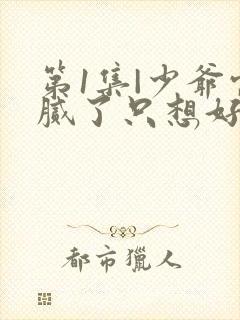 第1集|少爷
腻了只想好
都市獵人